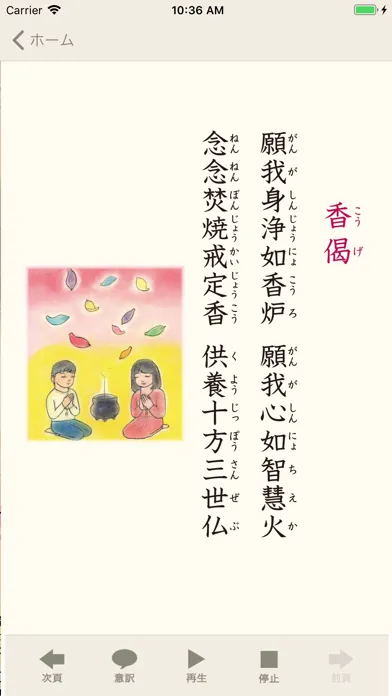 Carrier 10:36 AM
ホーム
香偈
こうげ
願我身浄如香炉 願我心如智慧火
がんがしんじょうにょこうろ がんがしんにょちえか
念念焚焼戒定香 供養十方三世仏
ねんねんぼんじょうかいじょうこう くようじっぽうさんぜぶ
次頁 意訳 再生 停止 前頁